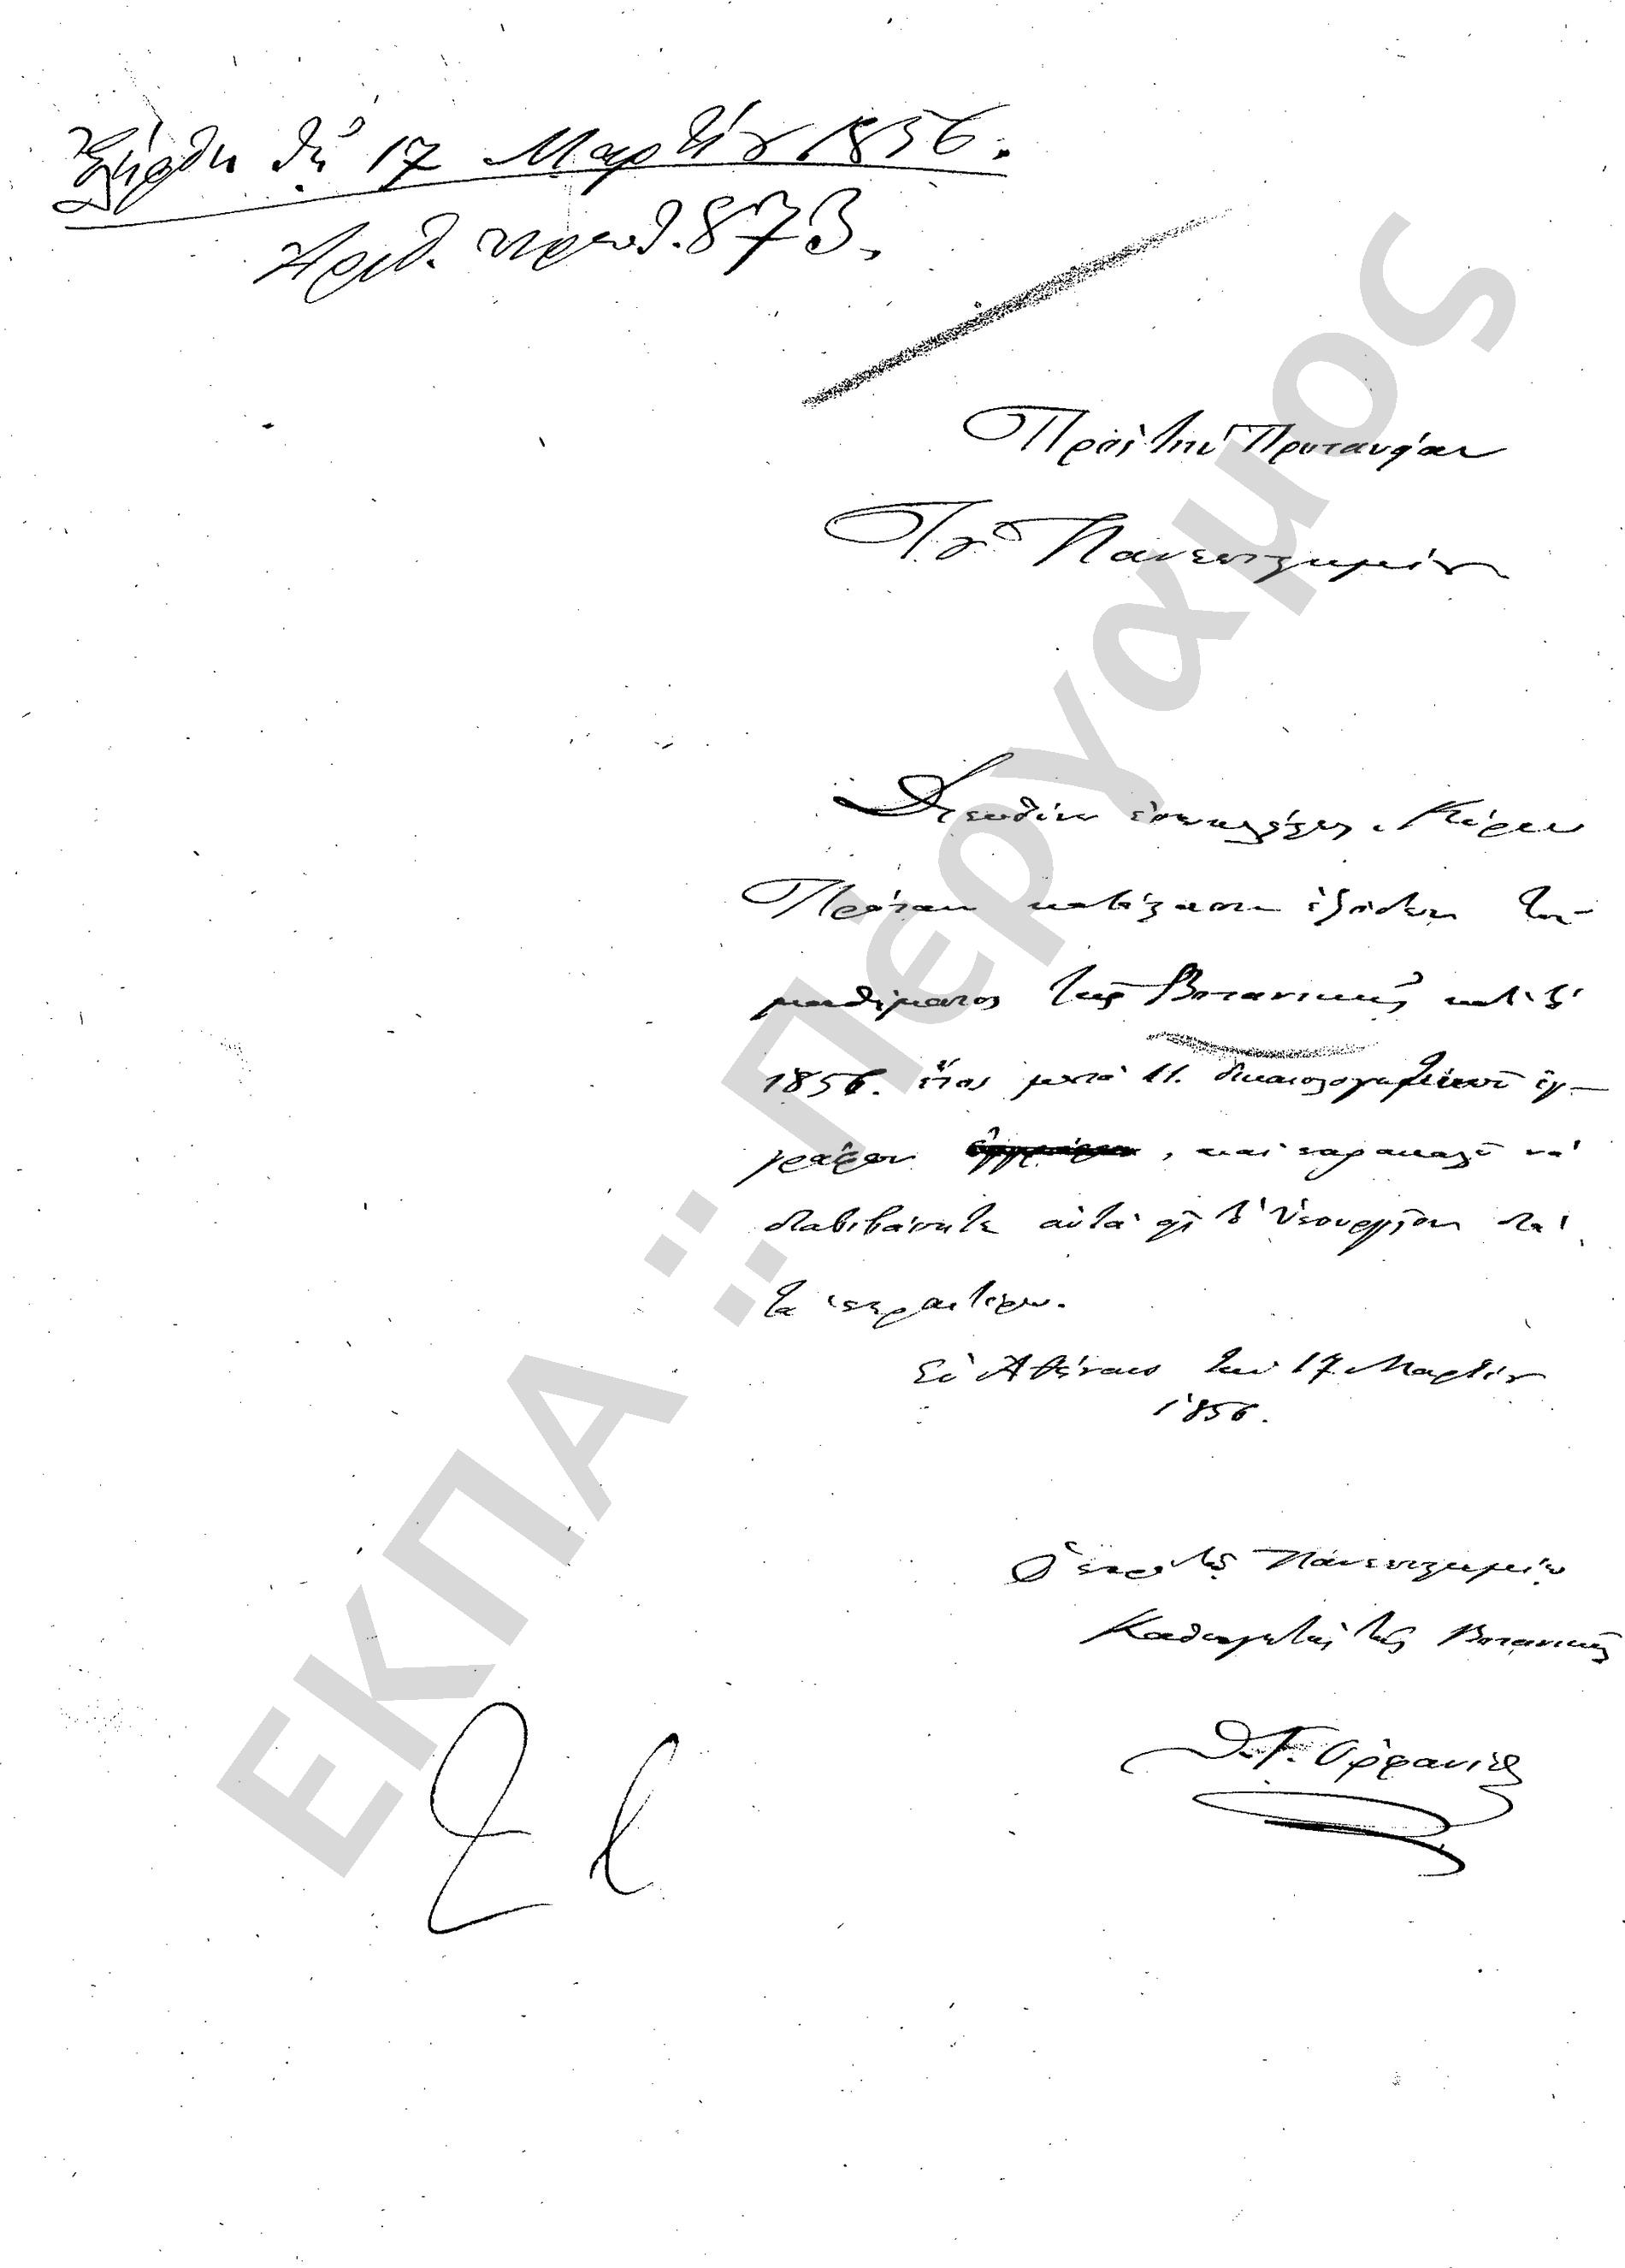 Ἐλήφθη τῇ 17 Μαρτίου 1856.
Ἀριθ. πρωτ. 873.
Πρὸς τὴν Πρυτανείαν
Τοῦ Πανεπιστημίου
Διευθύνω ἐσωκλείστως, Κύριε
Πρύτανι κατάστασιν ἐξόδων τοῦ
μαθήματος τῆς Βοτανικῆς κατὰ τὸ
1856. ἔτος μετὰ 11. δικαιολογητικῶν ἐγ-
γράφων, καὶ παρακαλῶ νὰ
διαβιβάσητε αὐτὰ εἰς τὸ Ὑπουργεῖον διὰ
τὰ περαιτέρω.
Ἐν Ἀθήναις τὴν 17 Μαρτίου
1856.
Ὁ ἐν τῷ Πανεπιστημίῳ
Καθηγητὴς τῆς Βοτανικῆς
Θ. Γ. Ὀρφανίδης
ΕΚΠΑ :: Πέργαμος